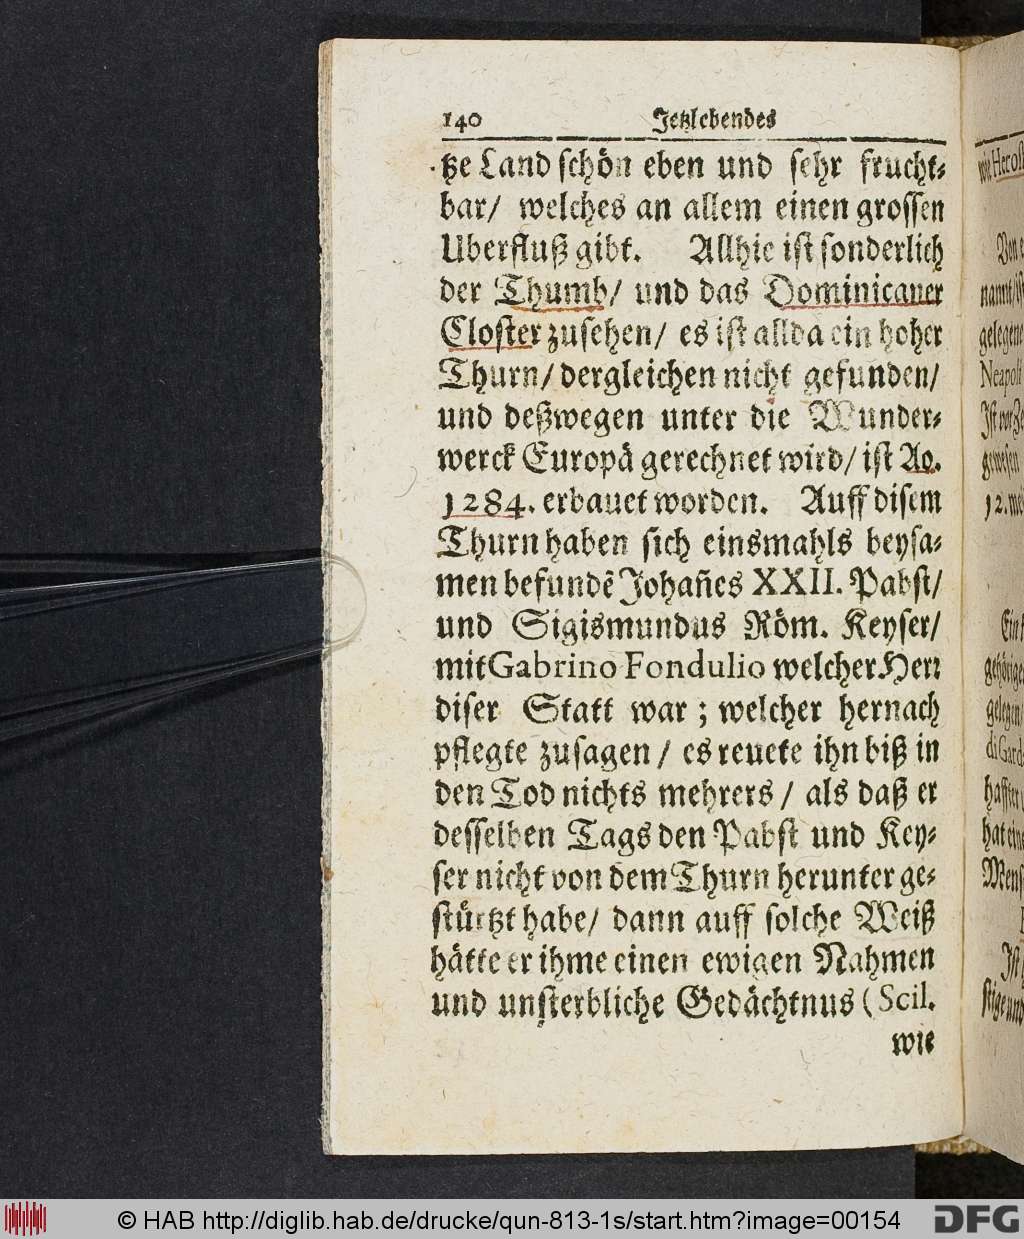 140 Jetzlebendes
tze Land schön eben und sehr frucht⸗
bar/ welches an allem einen grossen
Uberfluß gibt. Allhie ist sonderlich
der Thumb/ und das Dominicaner
Closter zusehen/ es ist allda ein hoher
Thurn/ dergleichen nicht gefunden/
und deßwegen unter die Wunder⸗
werck Europä gerechnet wird/ ist Ao.
1284. erbauet worden. Auff disem
Thurn haben sich einsmahls beysa⸗
men befundẽ Johañes XXII. Pabst/
und Sigismundus Röm. Keyser/
mit Gabrino Fondulio welcher Herꝛ
diser Statt war; welcher hernach
pflegte zusagen/ es reuete ihn biß in
den Tod nichts mehrers/ als daß er
desselben Tags den Pabst und Key⸗
ser nicht von dem Thurn herunter ge⸗
stürtzt habe/ dann auff solche Weiß
hätte er ihme einen ewigen Nahmen
und unsterbliche Gedächtnus (Scil.
wie
Neapoli
12.
© HAB http://diglib.hab.de/drucke/qun-813-1s/start.htm?image=00154
DFG